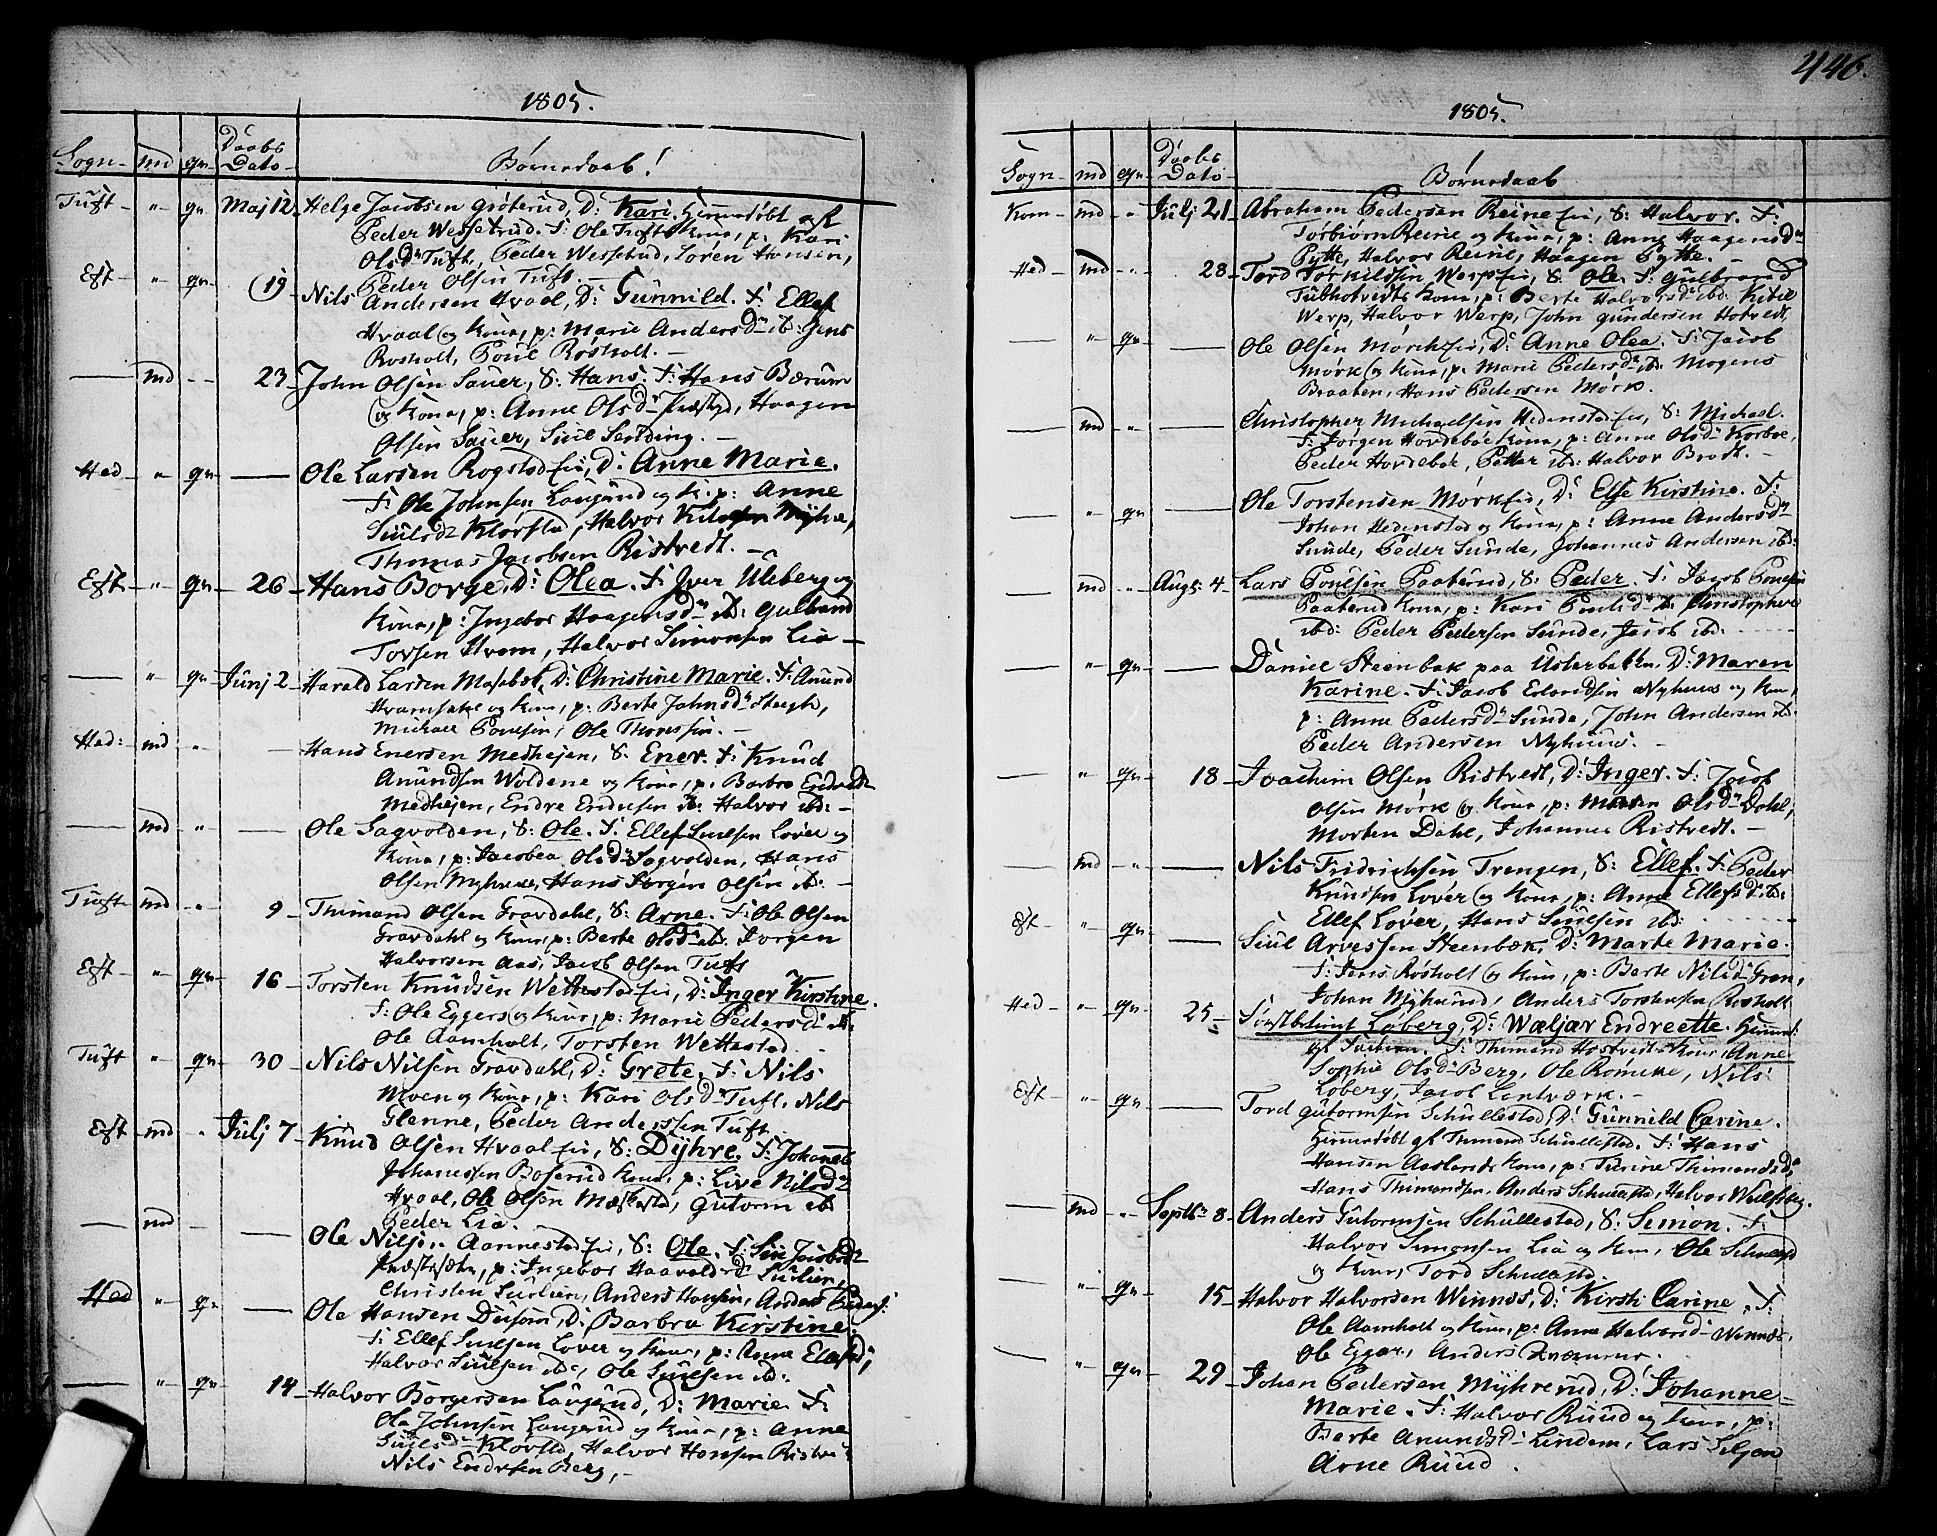 1805.
Sogn md qn Daabs Dato Børnedaab!
Tuft " qn Maj 12 Helge Jacobsen Grøterud, D: Kari. Hiemedøbt af
Peder Wessetrud. F: Ole Tufts Kone, p: Kari
Olsd. Tuft, Peder Wessetrud, Søren Hansen,
Peder Olsen Tuft.
Eft " qn 19 Nils Andersen Hvaal, D: Gunnild. F: Ellef
Hvaal og Kone, p: Marie Andersd. ib: Jens
Rosholt, Poul Rosholt.
md 23 John Olsen Sauer, S: Hans. F: Hans Bærum
og Kone, p: Anne Olsd. Haagen
Olsen Sauer, Siul
Hed " qn Ole Larsen Rogstad, D: Anne Marie.
F: Ole Johnsen Laugerud og K: p: Anne
Siulsd. Kløvstad, Halvor Myhre,
Thomas Jacobsen Ristvedt.
Eft " qn 26 Hans Borge, D: Olea. F: Iver Uleberg og
Kone, p: Ingebor Haagensd. ib: Gulbrand
Torsen Hvam, Halvor Simonsen Lia
" qn Junj 2 Harald Larsen D: Christine Marie. F: Anund
og Kone, p: Berte Johnsd.
Michael Poulsen, Ole Thomsen.
Hed: md " Hans Enersen Medhejen, S: Ener. F: Knud
Anundsen Woldene og Kone, p: Barbro
Medhejen, Endre Endresen ib: Halvor ibd:
md " Ole Sagvolden, S: Ole. F: Ellef Siulsen Lover og
Kone, p: Jacobea Olsd. Sagvolden, Hans
Olsen Myhrene, Hans Jørgen Olsen ib.
Tuft md " 9 Thimand Olsen Gravdahl, S: Arne. F: Ole Olsen
Gravdahl og Kone, p: Berte Olsd. ib. Jørgen
Halvorsen Aas, Jacob Olsen Tuft
Eft " qn 16 Torsten Knudsen Wettestad, D: Inger Kirstine.
F: Ole Eggers og Kone, p: Marie Pedersd. ib:
Ole Aamholt, Torsten Wettestad
Tuft " qn 30 Nils Nilsen Gravdahl, D: Grete. F: Nils
Moen og Kone, p: Kari Olsd. Tuft, Nils
Glenne, Peder Anderssen Tuft
Eft md " Julj 7 Knud Olsen Hvaal, S: Dyhre. F: Johannes
Johanessen Boserud Kone, p: Live Nilsd.
Hvaal, Ole Olsen Gutorm ib
Peder Lia.
md Ole Aannestad, S: Ole. F: Siri Jacobsd.
p: Ingebor Haavaldsd.
Christen Anders Hansen, Anders Pedersen
Hed " qn Ole Hansen D: Barbro Kirstine.
F: Ellef Siulsen Lover og Kone, p: Anne Ellefsd.,
Halvor Siulsen ib: Ole Siulsen ib:
" qn 14 Halvor Borgersen Laugerud, D: Marie. F:
Ole Johnsen Laugerud og Kone, p: Anne
Siulsd. Kløvstad, Halvor Hansen
Nils Endresen Berg,
446.
1805.
Sogn md qn Daabs Dato Børnedaab
Kom md " Julj 21 Abraham Pedersen Reine, S: Halvor. F:
Torbiørn Reine og Kone, p: Anne Haagensd.
Pytte, Halvor Reine, Haagen Pytte.
Hed md " 28 Tord Torkildsen Werp, S: Ole. F: Gulbrand
Kone, p: Berte Halvorsd. ibd: Kitil
Werp, Halvor Werp, John Gundersen Hotvedt
" qn Ole Olsen Mørk, D: Anne Olea. F: Jacob
Mørk og Kone, p: Marie Pedersd. ib. Mogens
Braaten, Hans Pedersen Mørk.
md " Christopher Michaelsen Hedenstad, S: Michael.
F: Jørgen Hordeboe Kone, p: Anne Olsd. Korboe,
Peder Hordeboe, Petter ib: Halvor Brodt.
" qn Ole Torstensen Mørk, D: Else Kirstine. F:
Johan Hedenstad og Kone, p: Anne Andersd.
Sunde, Peder Sunde, Johannes Andersen ib:
md " Augs 4 Lars Poulsen Paaterud, S: Peder. F: Jacob Poulsen
Paaterud Kone, p: Kari Poulsd. ib. Christopher
ibd: Peder Pedersen Sunde, Jacob ibd:
" qn Daniel Steenbæk paa D: Maren
Karine. F: Jacob Nyhuus og Kone,
p: Anne Pedersd. Sunde, John Andersen ib.
Peder Andersen Nyhuus.
" qn 18 Joachim Olsen Ristvedt, D: Inger. F: Jacob
Olsen Mørk og Kone, p: Maren Olsd. Dahl,
Morten Dahl, Johannes Ristvedt.
md " Nils Fridrichsen Trengen, S: Ellef. F: Peder
Knudsen Lover og Kone, p: Anne Ellefsd. ib:
Ellef Lover, Hans Siulsen ib:
Eft " qn Siul Arvessen Steenbæk, D: Marte Marie.
F: Jens Rosholt og Kone, p: Berte Nilsd. Gren,
Johan Myhrund, Anders Torstensen Rosholt
Hed " qn 25 Løberg, D: Wæljær Endreette. Hiemed:
af F: Thimand Hostvedt Kone, Anne
Sophie Olsd. Berg, Ole Romcke, Nils
Løberg, Jacob
Eft " qn Tord Gutormsen Schullestad, D: Gunnild Carine.
Hiemedøbt af Thimand Schullestad. F: Hans
Hansen Aaslands Kone, p: Thimandsd.
Hans Thimandsen, Anders Schullestad, Halvor
md " Septbr 8 Anders Gutormsen Schullestad, S: Simon. F:
Halvor Simonsen Lia og Kone, Ole Schullestad
og Kone, Tord Schullestad.
" qn 15 Halvor Halvorsen Winnes, D: Kirsti Carine. F:
Ole Aamholt og Kone, p: Anne Halvorsd. Winnes,
Ole Egger, Anders
" qn 29 Johan Pedersen Myhrerud, D: Johanne
Marie. F: Halvor Ruud og Kone, p:
Berte Anundsd. Lindem, Lars
Arne Ruud.